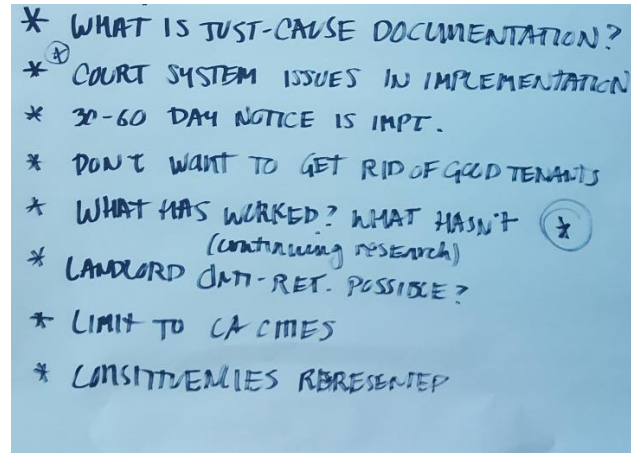 * WHAT IS JUST-CAUSE DOCUMENTATION?
* * COURT SYSTEM ISSUES IN IMPLEMENTATION
* 30-60 DAY NOTICE IS IMPT.
* DON'T WANT TO GET RID OF GOOD TENANTS
* WHAT HAS WORKED? WHAT HASN'T *
(continuing research)
* LANDLORD ANTI-RET. POSSIBLE?
* LIMIT TO CA CITIES
* CONSITUENCIES REPRESENTED